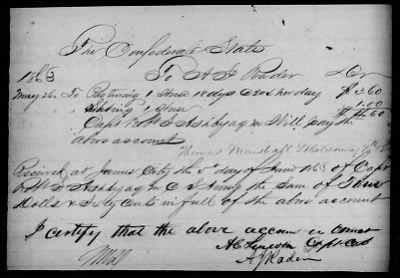 The Confederate State
1863 To A J Rader Dr
May 26. To Pasturing 1 Horse 18 days @ 20c per day $3.60
" Shoeing 1 Horse 1.00
$4.60
Capt W. M. will pay the
above account
Thomas Marshall
Received at James City the 5th day of June 1863 of Capt
the Sum of Four
Dollars & Sixty Cents in full of the above account
I certify that the above account is correct
A J Rader